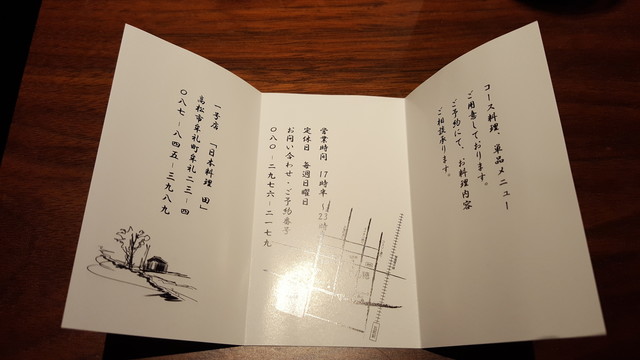 コース料理、単品メニュー
ご用意しております。
ご予約にて、お料理内容
ご相談承ります。
営業時間 17時半〜23時
定休日 毎週日曜日
お問い合わせ・ご予約番号
〇八〇-二九七六-二一七九
一号店 「日本料理 田」
高松市牟礼町牟礼二三-四
〇八七-八四五-三九八九